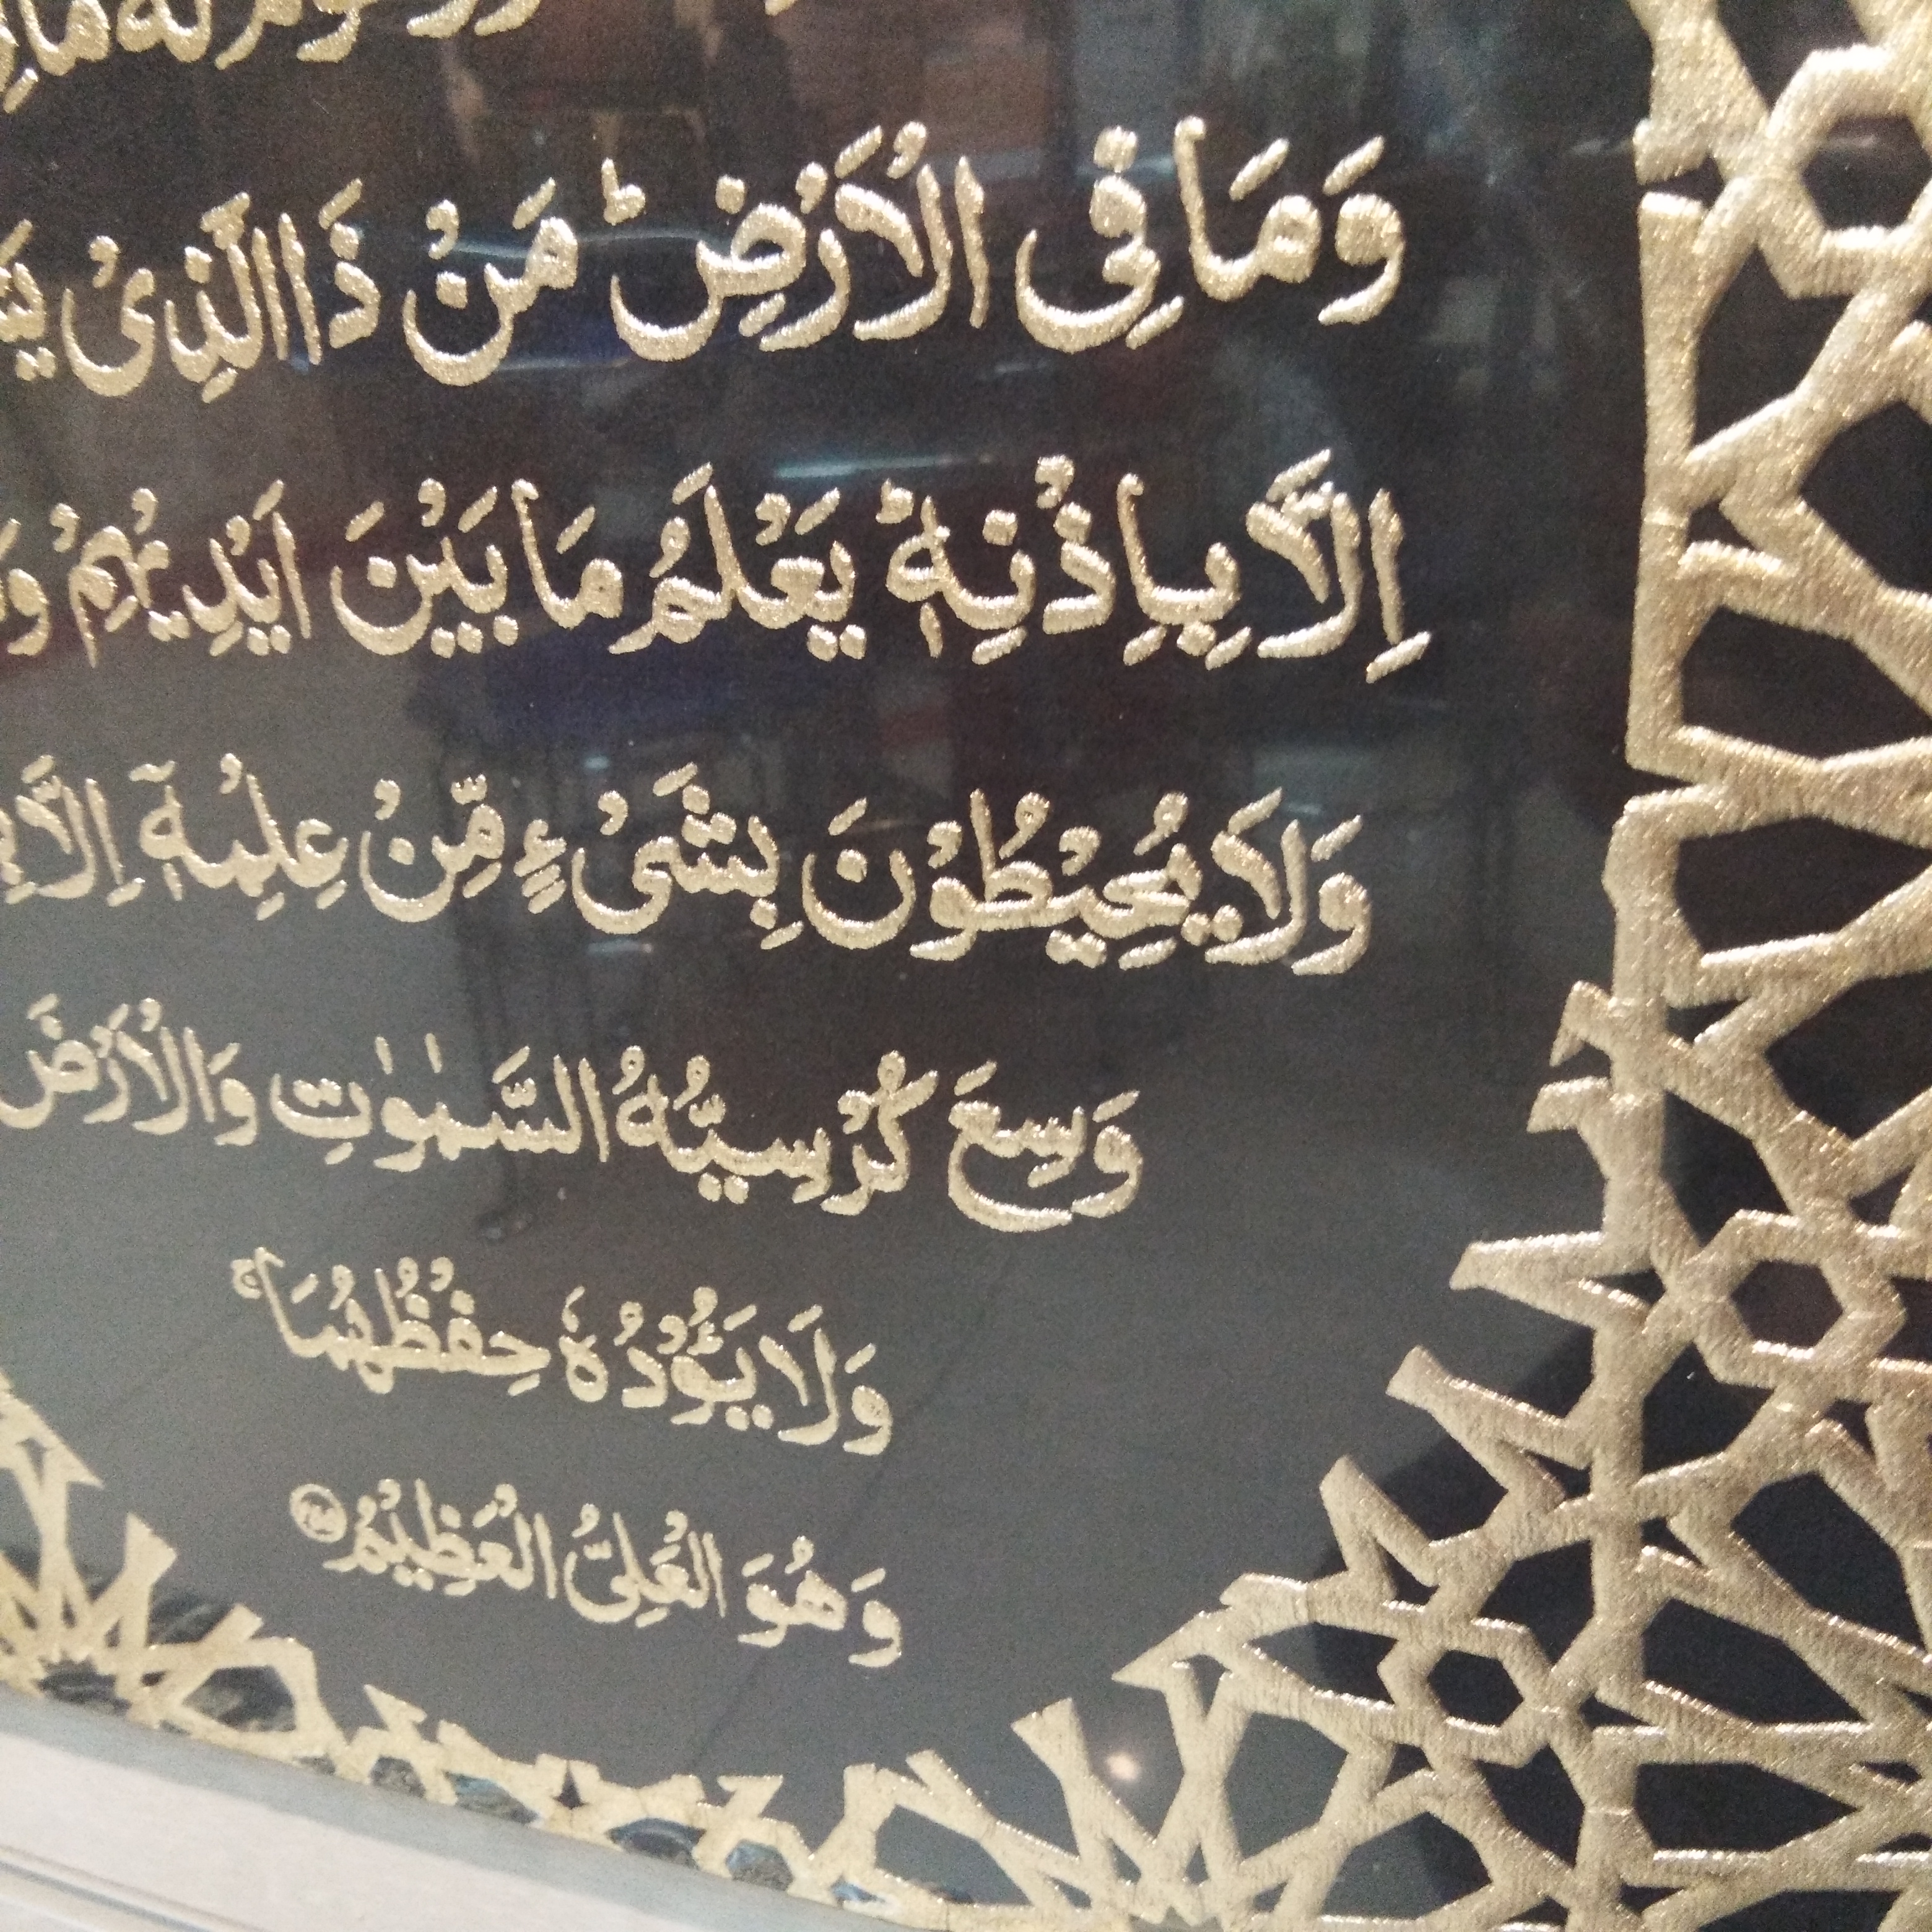 لَهٗ مَا
وَمَا فِی الْاَرْضِ ؕ مَنْ ذَا الَّذِیْ
اِلَّا بِاِذْنِهٖ ؕ یَعْلَمُ مَا بَیْنَ اَیْدِیْهِمْ
وَلَا یُحِیْطُوْنَ بِشَیْءٍ مِّنْ عِلْمِهٖۤ اِلَّا
وَسِعَ كُرْسِیُّهُ السَّمٰوٰتِ وَالْاَرْضَ
وَلَا یَـُٔوْدُهٗ حِفْظُهُمَا ۚ
وَهُوَ الْعَلِیُّ الْعَظِیْمُ